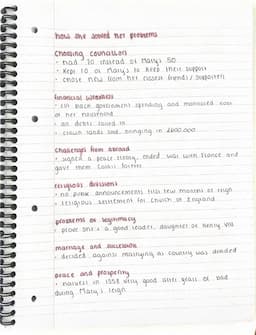 how she solved her problems
Choosing councillors
• had 20 instead of Mary's 50
• kept 10 of Mary's to keep their support
• chose new from her closest friends / supporters
financial weakness
• cut back government spending and managed cost
of her household
• all debts
• crown lands sold, bringing in £600,000
Challenges from abroad
• signed a peace treaty, ended war with France and
gave them Calais
religious divisions
• no public announcements first few months of reign
• religious settlement for Church of England
problems of legitimacy
• prove she's a good leader, daughter of Henry VIII
marriage and succession
• decided against marrying as country was divided
peace and prosperity
• harvest in 1558 very good after years of bad
during Mary's reign